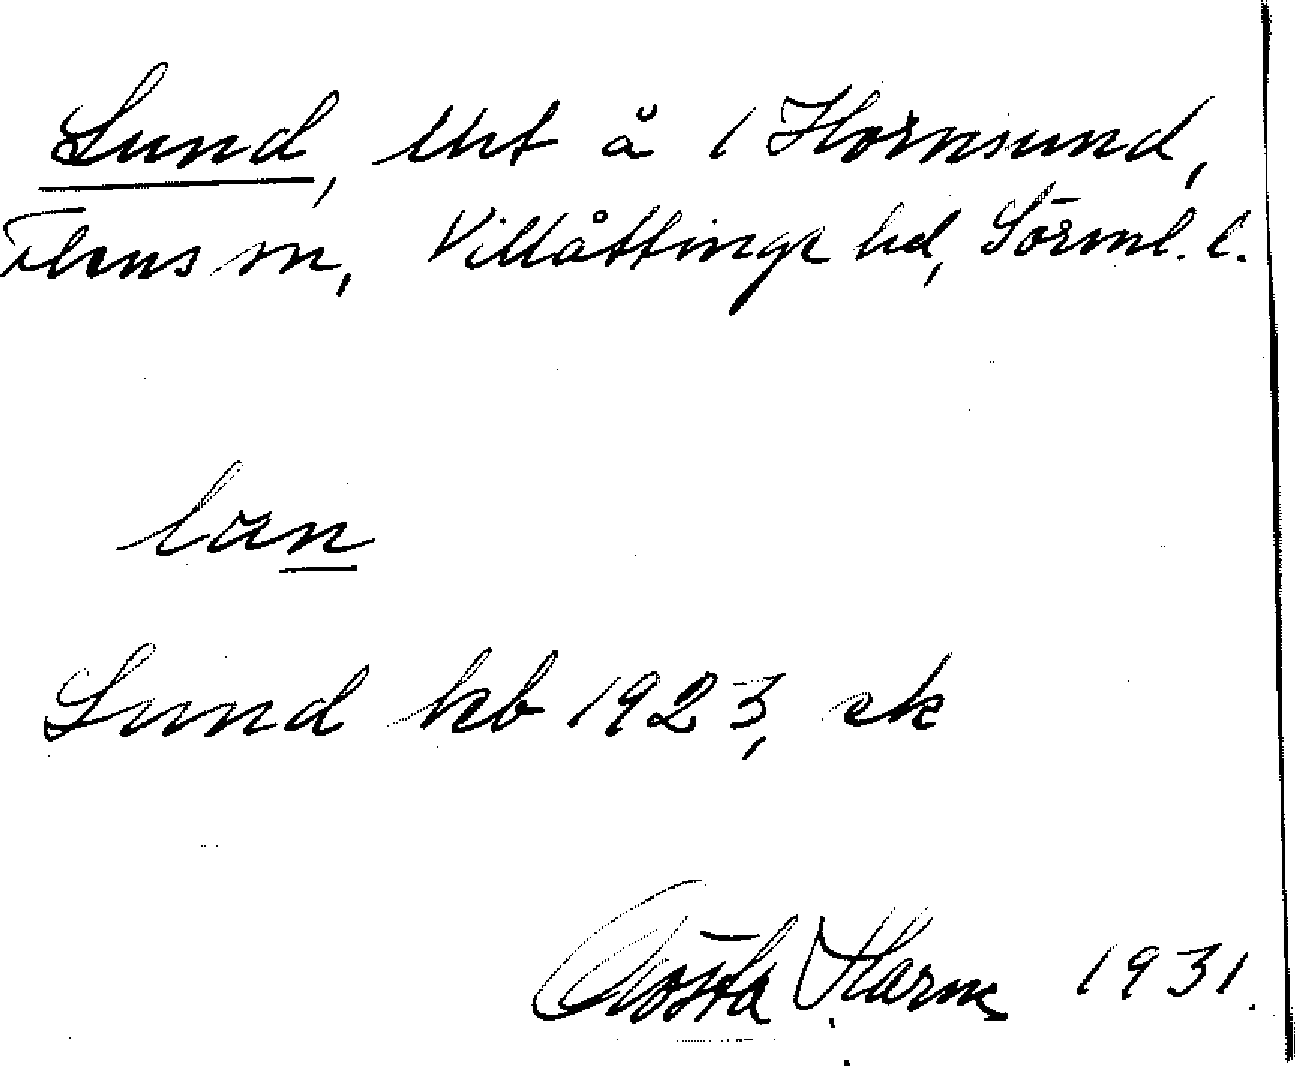 Lund, lht å 1 Hornsund,
Flens sn, Villåttinge hd, Sörml. l.
lun
Lund kb 1923, ek
Gösta Harne 1931.